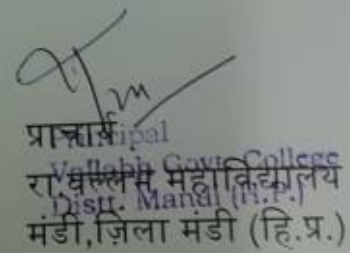 प्राचार्य
Principal
Vallabh Govt. College
रा. वल्लभ महाविद्यालय
Distt. Mandi (H.P.)
मंडी,ज़िला मंडी (हि.प्र.)